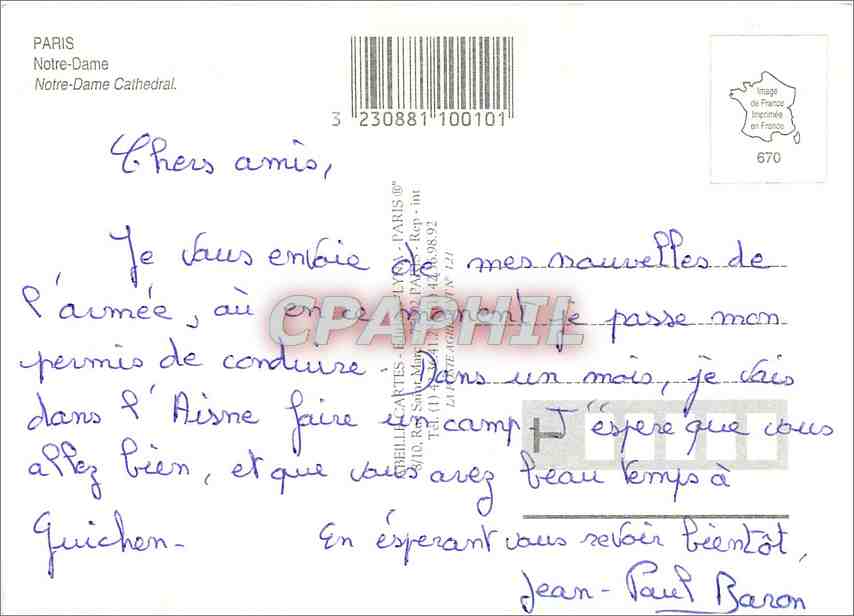 PARIS
Notre-Dame
Notre-Dame Cathedral.
3 230881 100101
Image
de France
Imprimée
en France
670
Chers amis,
Je vous envoie de mes nouvelles de
l'armée, où en ce moment je passe mon
permis de conduire. Dans un mois, je vais
dans l'Aisne faire un camp. J'éspere que vous
allez bien, et que vous avez beau temps à
Guichen.
En ésperant vous revoir bientôt,
Jean-Paul Baron
CPAPHIL
- PARIS ®"
8/10, Rue Saint Marc PARIS - Rep - int
Tél. (1)